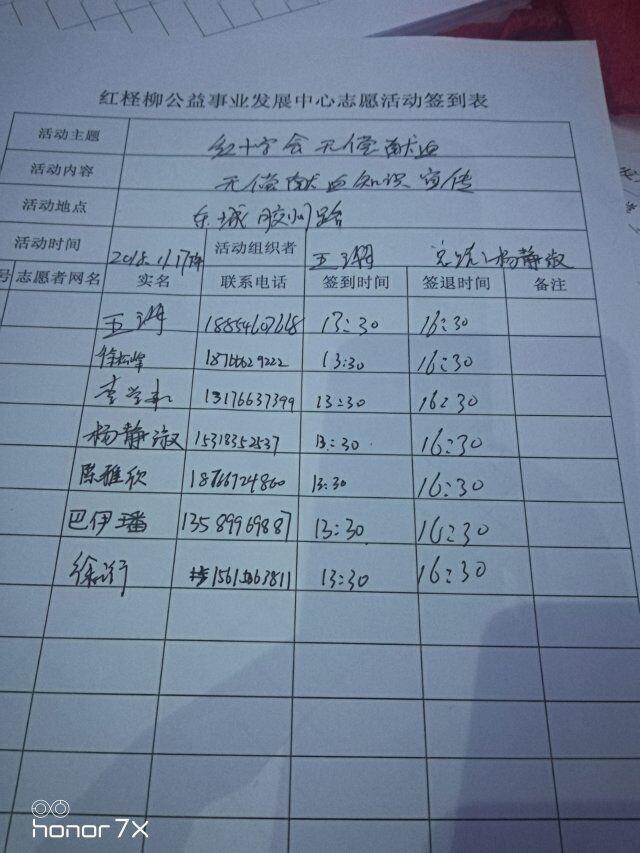 红柽柳公益事业发展中心志愿活动签到表
活动主题 红十字会无偿献血
活动内容 无偿献血知识宣传
活动地点 东城胶州路
活动时间 2018.11.17 活动组织者 杨静淑
号 志愿者网名 实名 联系电话 签到时间 签退时间 备注
13:30 16:30
徐松峰 18766629222 13:30 16:30
13176637399 13:30 16:30
杨静淑 15318352537 13:30 16:30
陈雅欣 18766724860 13:30 16:30
巴伊璠 13589969887 13:30 16:30
13:30 16:30
honor 7X